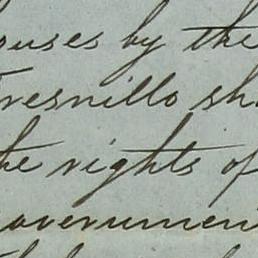 ouses by the
Fresnillo sh
the rights of
overnmen